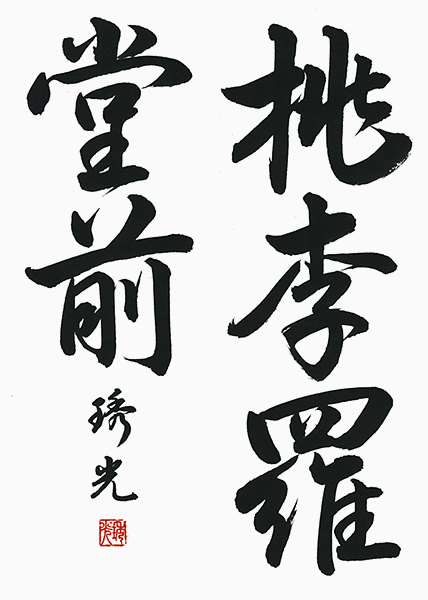 桃李羅
堂前
琇光